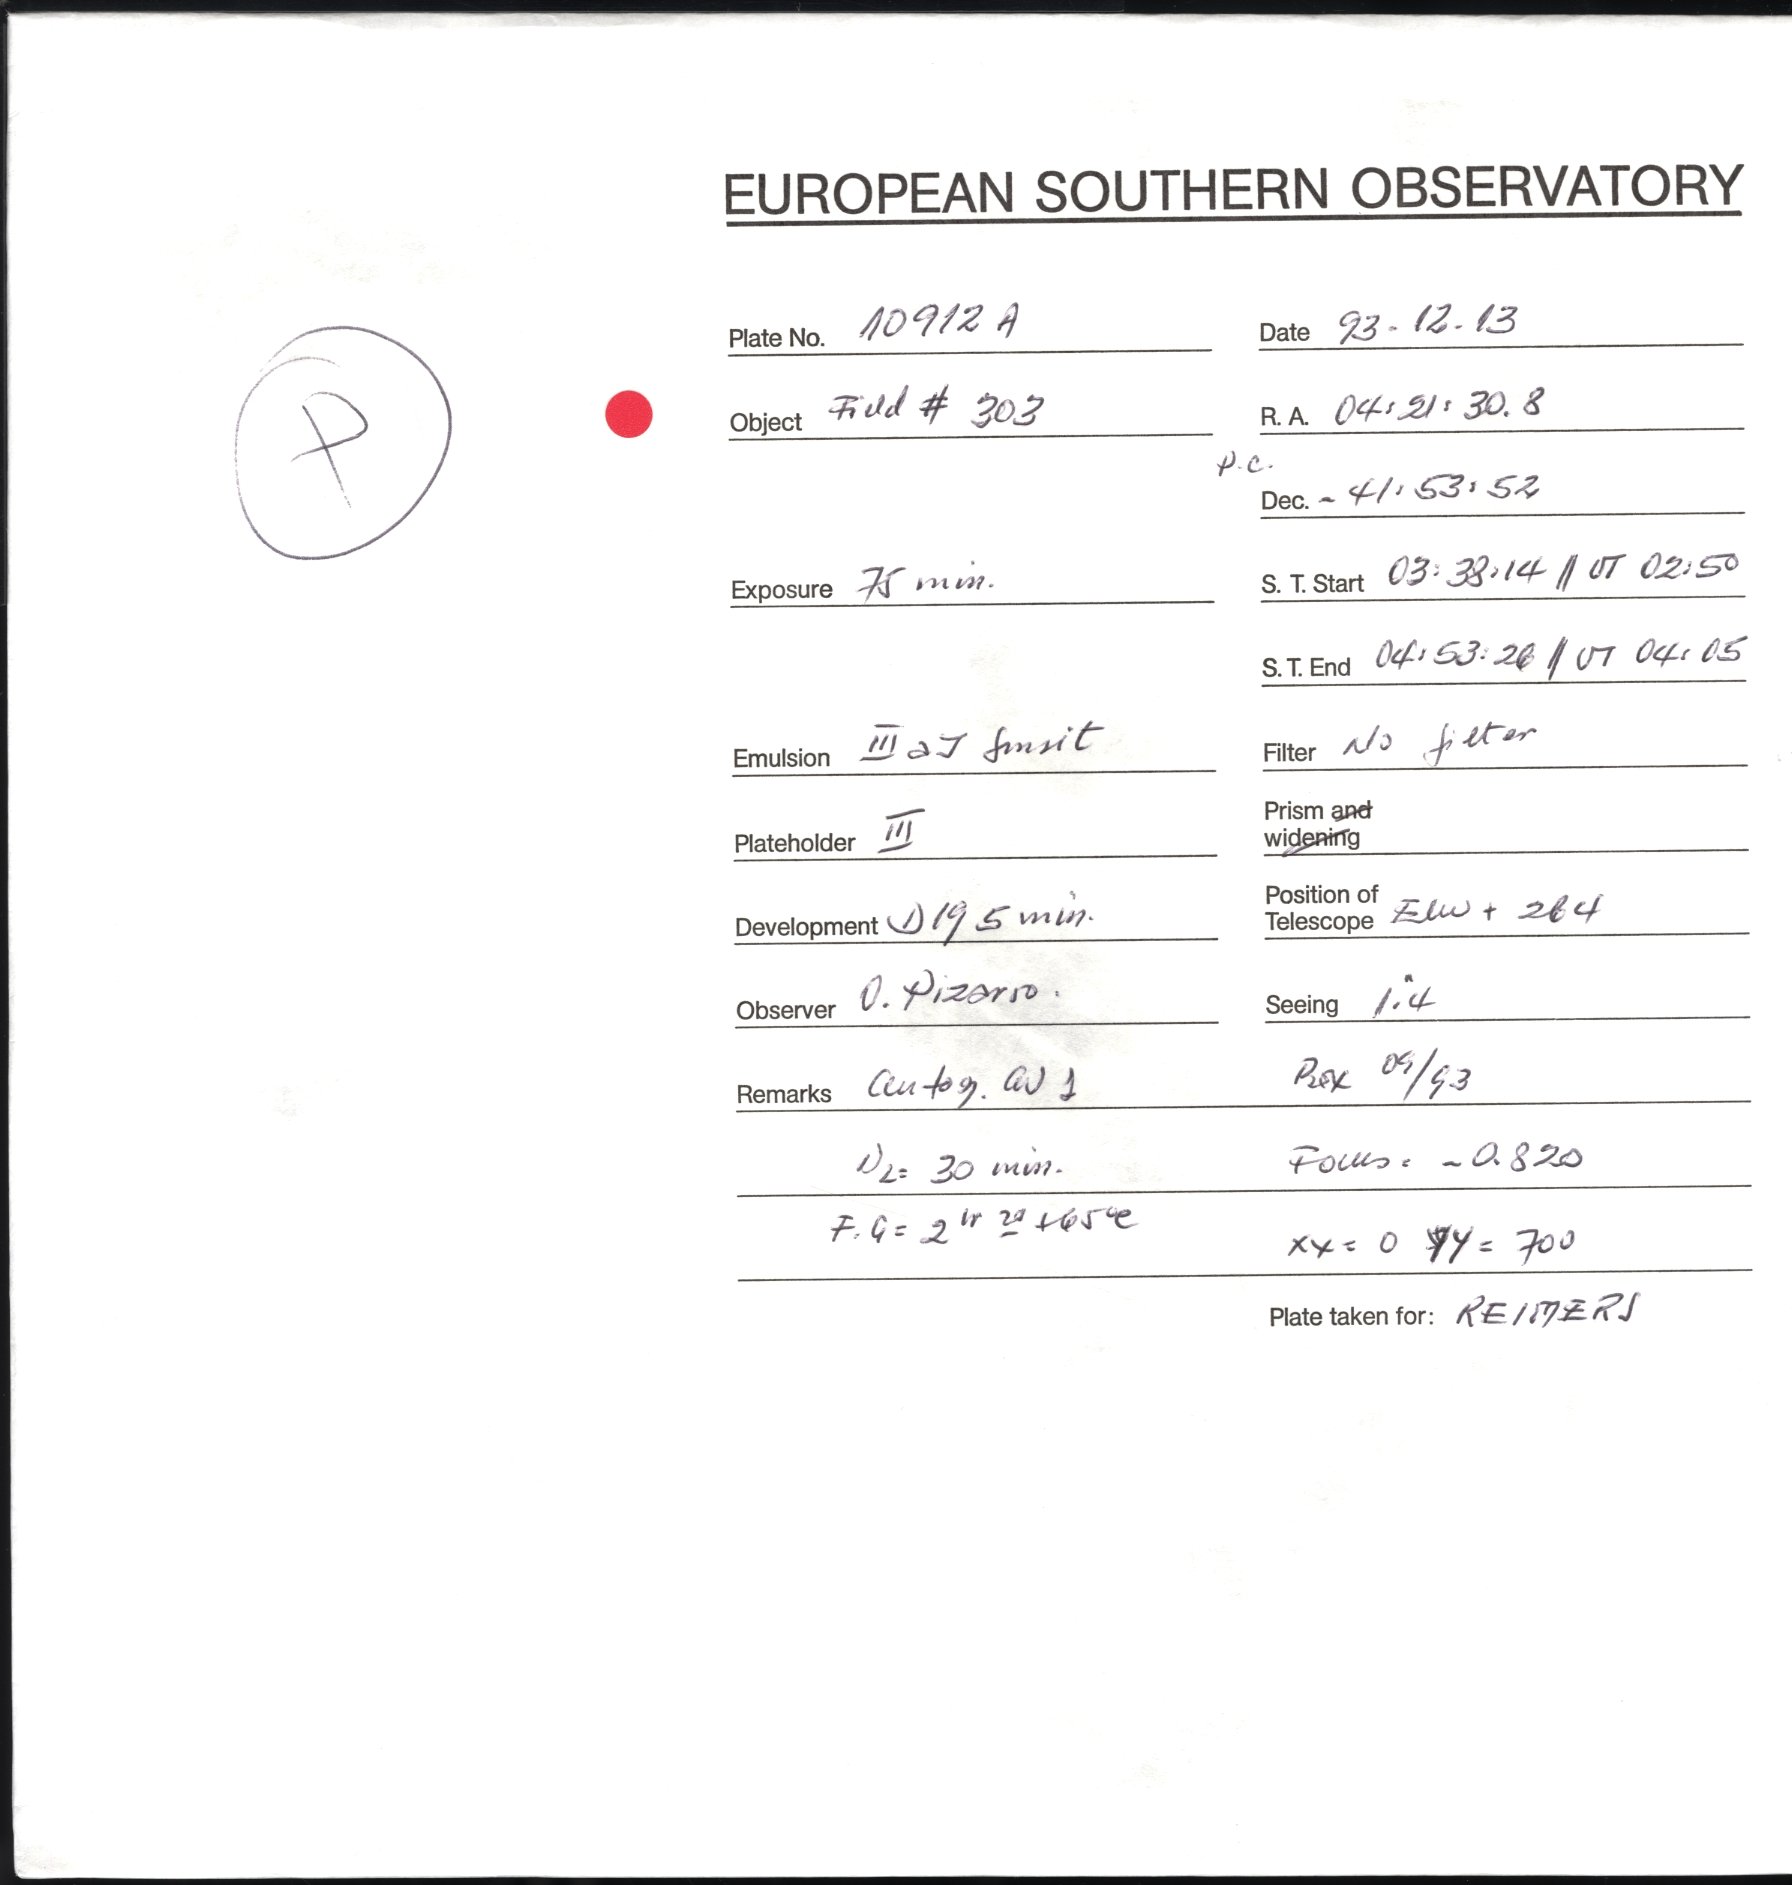 EUROPEAN SOUTHERN OBSERVATORY
Plate No. 10912 A Date 93-12-13
P
Object Field # 303 R. A. 04:21:30.8
P.C.
Dec. - 41:53:52
Exposure 75 min. S. T. Start 03:38:14 // UT 02:50
S. T. End 04:53:26 // UT 04:05
Emulsion III aJ Filter No filter
Plateholder III Prism and
widening
Development D19 5 min. Position of
Telescope + 264
Observer O. Pizarro. Seeing 1".4
Remarks 09/93
N2= 30 min. Focus: -0.820
F.G= 2 xx= 0 yy= 700
Plate taken for: REIMERS